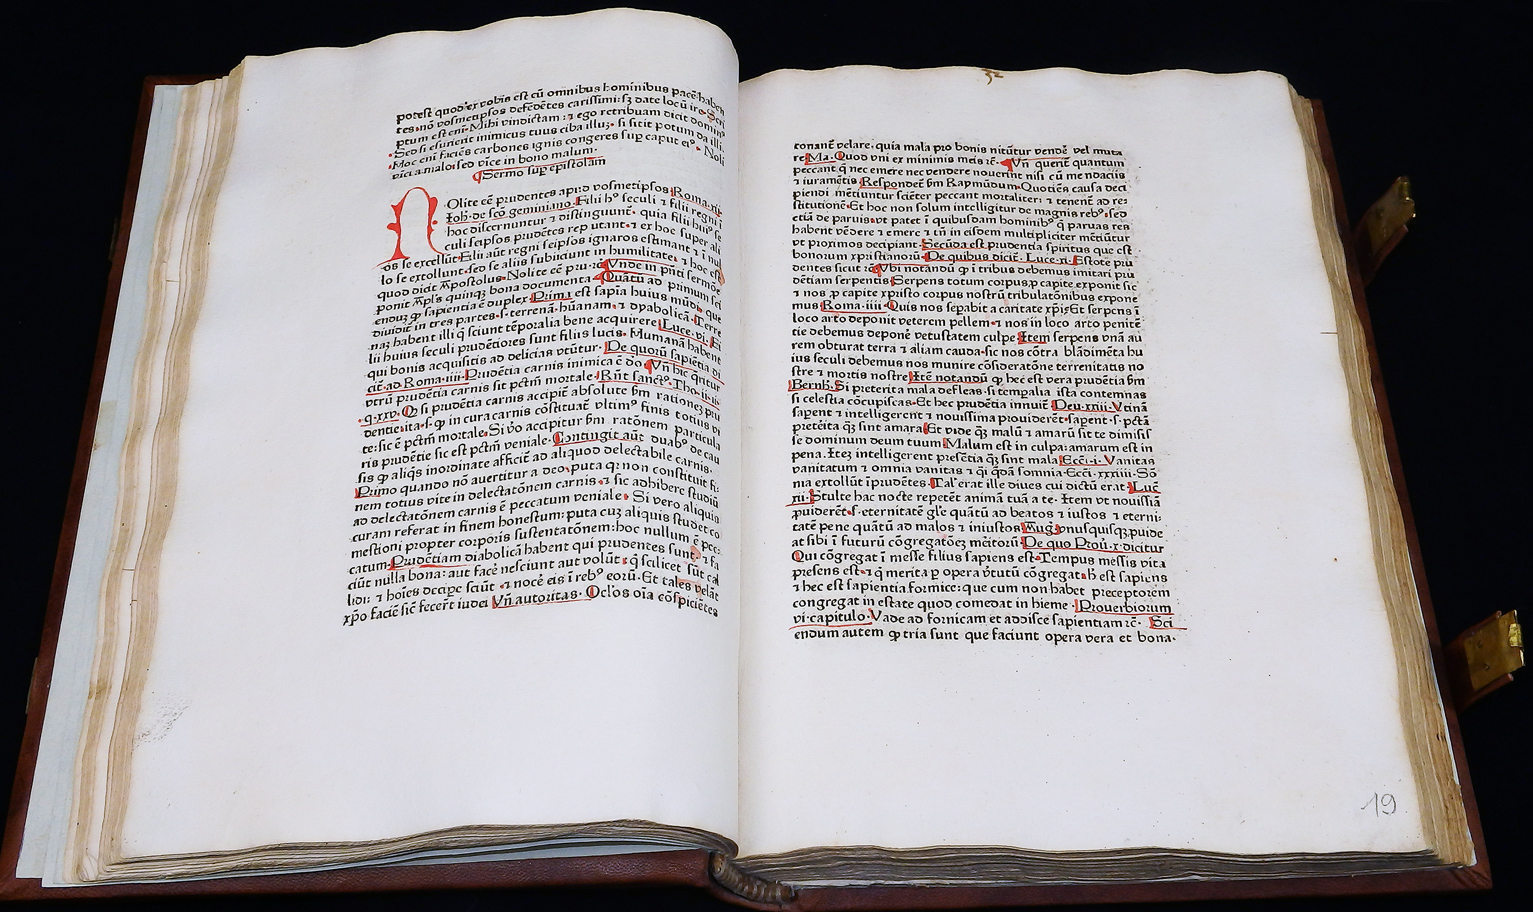 potest quod ex vobis est cū omnibus hominibus pacē haben
tes. nō vosmetipsos defēdētes carissimi: sꝫ date locū ire. Scri
ptum est eni. Mihi vindictam: ⁊ ego retribuam dicit domin⁹
Sed si esurierit inimicus tuus ciba illuꝫ. si sitit potum da illi.
Hoc eni faciēs carbones ignis congeres sup caput ei⁹. Noli
vīci a malo: sed vīce in bono malum.
Sermo sup epistolam
NOlite eē prudentes apud vosmetipsos Roma. xij.
Joh. de scō geminiano. Filii h⁹ seculi ⁊ filii regni ī
hoc discernuntur ⁊ distinguunt. quia filii hui⁹ se
culi seipsos prudētes reputant. ⁊ ex hoc super ali
os se excellūt. Filii aūt regni seipsos ignaros estimant ⁊ ī nul
lo se extollunt. sed se aliis subiciunt in humilitate. ⁊ hoc est
quod dicit Apostolus. Nolite eē pru. ꝛē. Vnde in pn̄ti sermōe
ponit Apl̄s quinqꝫ bona documenta. Quātū ad primum sci
enduꝫ ꝙ sapientia ē duplex. Prima est sapīa huius mūdi. que
diuidit̄ in tres partes. s. terrenā. hūanam. ⁊ dyabolicā. Terre
naꝫ habent illi q̄ sciunt tēporalia bene acquirere. Luce. vi. Fi
lii huius seculi prudētiores sunt filiis lucis. Humanā habent
qui bonis acquisitis ad delicias vtūtur. De quorū sapiētia di
cit̄ ad Roma. iiii. Prudētia carnis inimica ē deo. Vn̄ hic q̄ritur
vtrū prudētia carnis sit pctm̄ mortale. Rn̄t sanct⁹. Tho. ii. ii.
q. xxv. Q si prudētia carnis accipit̄ absolute s̄m rationeꝫ pru
dentie. ita. s. ꝙ in cura carnis cōstituat̄ vltim⁹ finis totius vi
te: sic ē pctm̄ mortale. Si v̄o accipitur s̄m ratōnem particula
ris prudētie sic est pctm̄ veniale. Contingit aūt duab⁹ de cau
sis ꝙ aliq̄s inordinate afficit̄ ad aliquod delectabile carnis.
Primo quando nō auertitur a deo. puta q̄ non constituit fi-
nem totius vite in delectatōnem carnis. ⁊ sic adhibere studiū
ad delectatōnem carnis ē peccatum veniale. Si vero aliquis
curam referat in finem honestum: puta cuꝫ aliquis studet co
mestioni propter corporis sustentatōnem: hoc nullum ē pec-
catum. Prudētiam diabolicā habent qui prudentes sunt. ⁊ fa
ciūt nulla bona: aut facē nesciunt aut volūt. q̄ scilicet sūt cal
lidi: ⁊ hoīes decipe sciūt. ⁊ nocē eis ī reb⁹ eorū. Et tales velāt
xp̄o faciē sic̄ fecer̄t iudei. Vn̄ autoritas. Ocl̄os oīa cōspiciētes
conant̄ velare. quia mala pro bonis nitūtur vendē vel muta
re. Ma. Quod vni ex minimis meis ꝛē. Vn̄ querit̄ quantum
peccant q̄ nec emere nec vendere nouerint nisi cū mendaciis
⁊ iuramētis. Respondet̄ s̄m Raymūdum. Quotiēs causa deci
piendi mētiuntur sciēter peccant mortaliter: ⁊ tenent̄ ad re-
stitutionē. Et hoc non solum intelligitur de magnis reb⁹. sed
etiā de paruis. vt patet ī quibusdam hominib⁹ q̄ paruas res
habent vēdere ⁊ emere ⁊ tn̄ in eisdem multipliciter mētiūtur
vt proximos decipiant. Secūda est prudentia spiritus que est
bonorum xpristianoꝝ. De quibus dicit̄. Luce. xi. Estote pru
dentes sicut ꝛē. Vbi notandū ꝙ ī tribus debemus imitari pru
dētiam serpentis. Serpens totum corpus ꝓ capite exponit sic
⁊ nos ꝓ capite xpristo corpus nostrū tribulatōnibus expone
mus. Roma. iiii. Quis nos sepabit a caritate xpi. Et serpens ī
loco arto deponit veterem pellem. ⁊ nos in loco arto penitē
tie debemus deponē vetustatem culpe. Item serpens vnā au
rem obturat terra ⁊ aliam cauda. sic nos cōtra blādimēta hu
ius seculi debemus nos munire cōsideratōne terrenitatis no
stre ⁊ mortis nostre. Itē notandū ꝙ hec est vera prudētia s̄m
Bernh. Si preterita mala defleas. si tempalia ista contemnas
si celestia cōcupiscas. Et hec prudētia innuit̄. Deu. xxiii. Vtinā
saperent ⁊ intelligerent ⁊ nouissima prouiderēt. sapent. s. pctā
preterita q̄ sint amara. Et vide q̄ malū ⁊ amarū sit te dimisis
se dominum deum tuum. Malum est in culpa: amarum est in
pena. Iteꝫ intelligerent presētia q̄ sint mala. Ecci. i. Vanitas
vanitatum ⁊ omnia vanitas ⁊ q̄i q̄dā somnia. Ecci. xxxiiii. Sō
nia extollūt iprudētes. Tal̄ erat ille diues cui dictū erat. Luc̄
xii. Stulte hac nocte repetēt animā tuā a te. Item vt nouissia
ꝓuiderēt. s. eternitatē gl̄e quātū ad beatos ⁊ iustos ⁊ eterni-
tatē pene quātū ad malos ⁊ iniustos. Aug. vnusquisqꝫ ꝓuide
at sibi ī futurū cōgregatōeꝫ mēitorū. De quo Prou. x. dicitur
Qui cōgregat ī messe filius sapiens est. Tempus messis vita
presens est. ⁊ q̄ merita ꝑ opera v̄tutū cōgregat. h̄ est sapiens
⁊ hec est sapientia formice: que cum non habet preceptorem
congregat in estate quod comedat in hieme. Prouerbiorum
vi. capitulo. Vade ad formicam et addisce sapientiam ꝛē. Sci
endum autem ꝙ tria sunt que faciunt opera vera et bona.
19